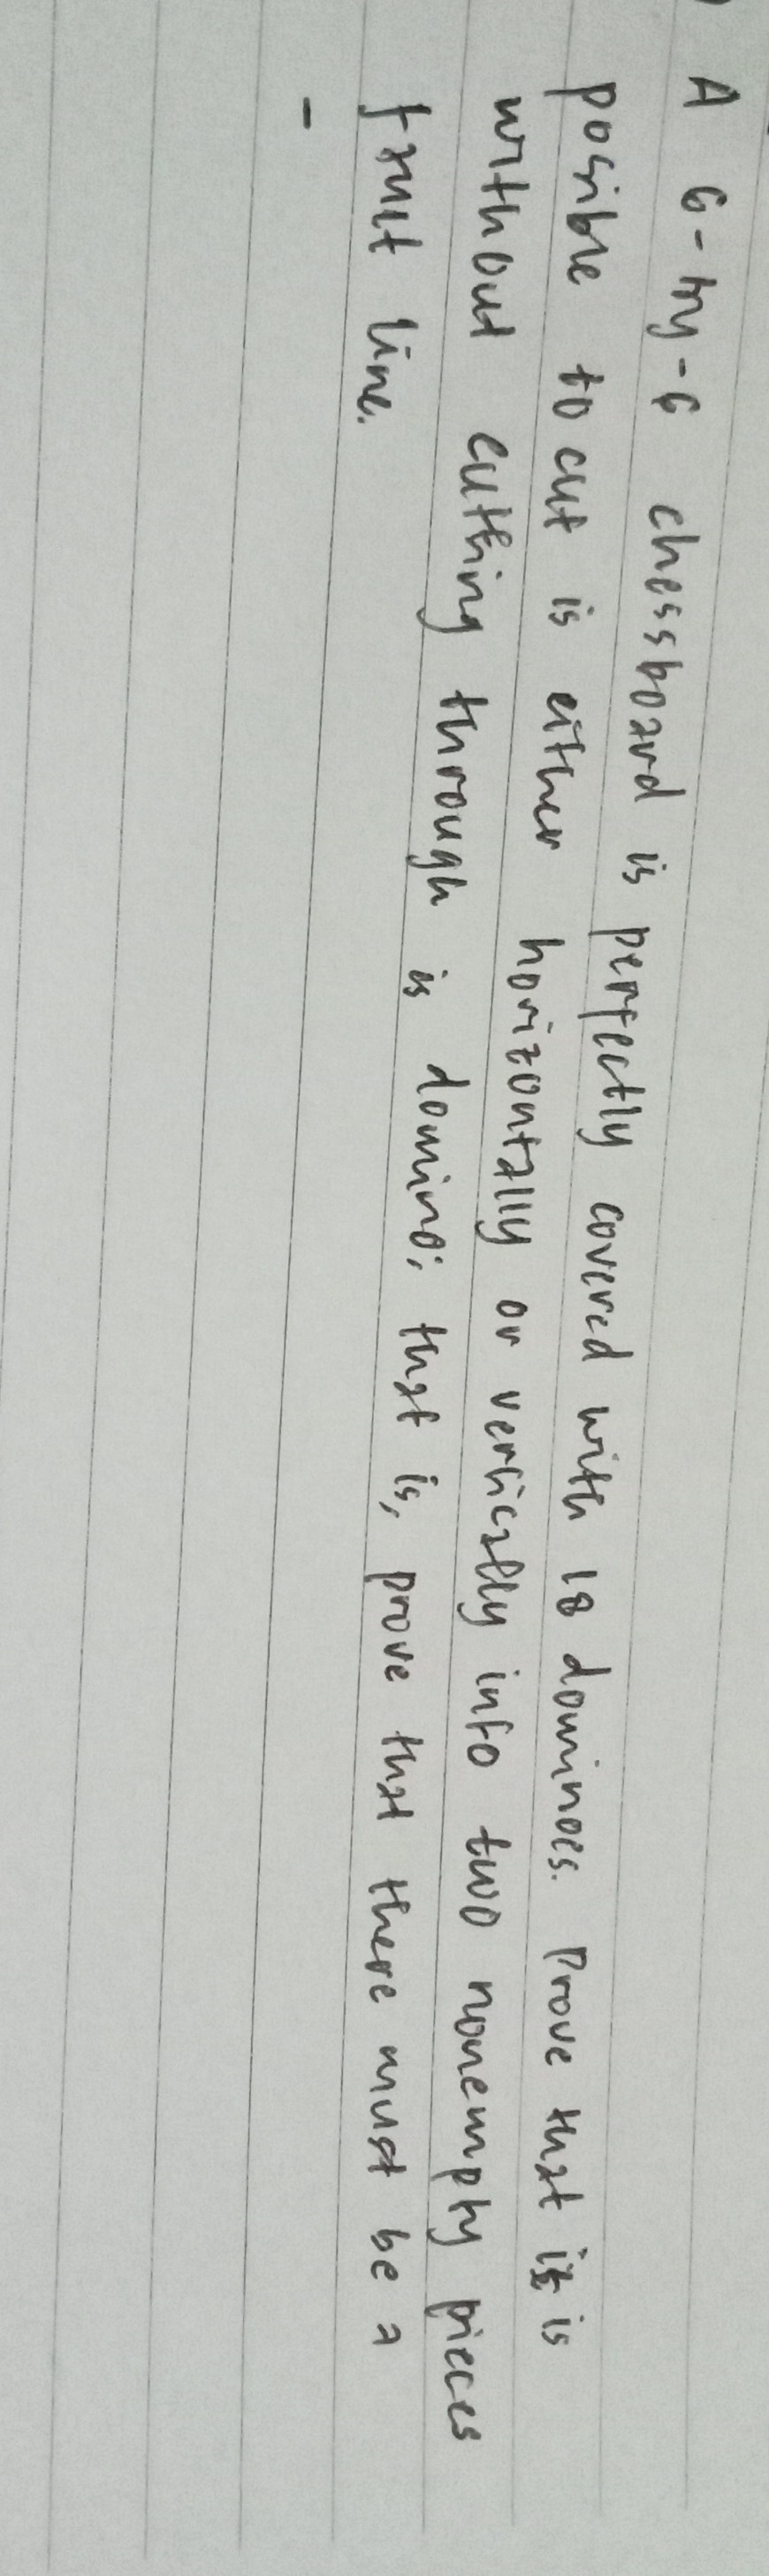 A 6-by-6 chessboard is perfectly covered with 18 dominoes. Prove that it is
possible to cut is either horizontally or vertically into two nonempty pieces
without cutting through is domino; that is, prove that there must be a
fault line.